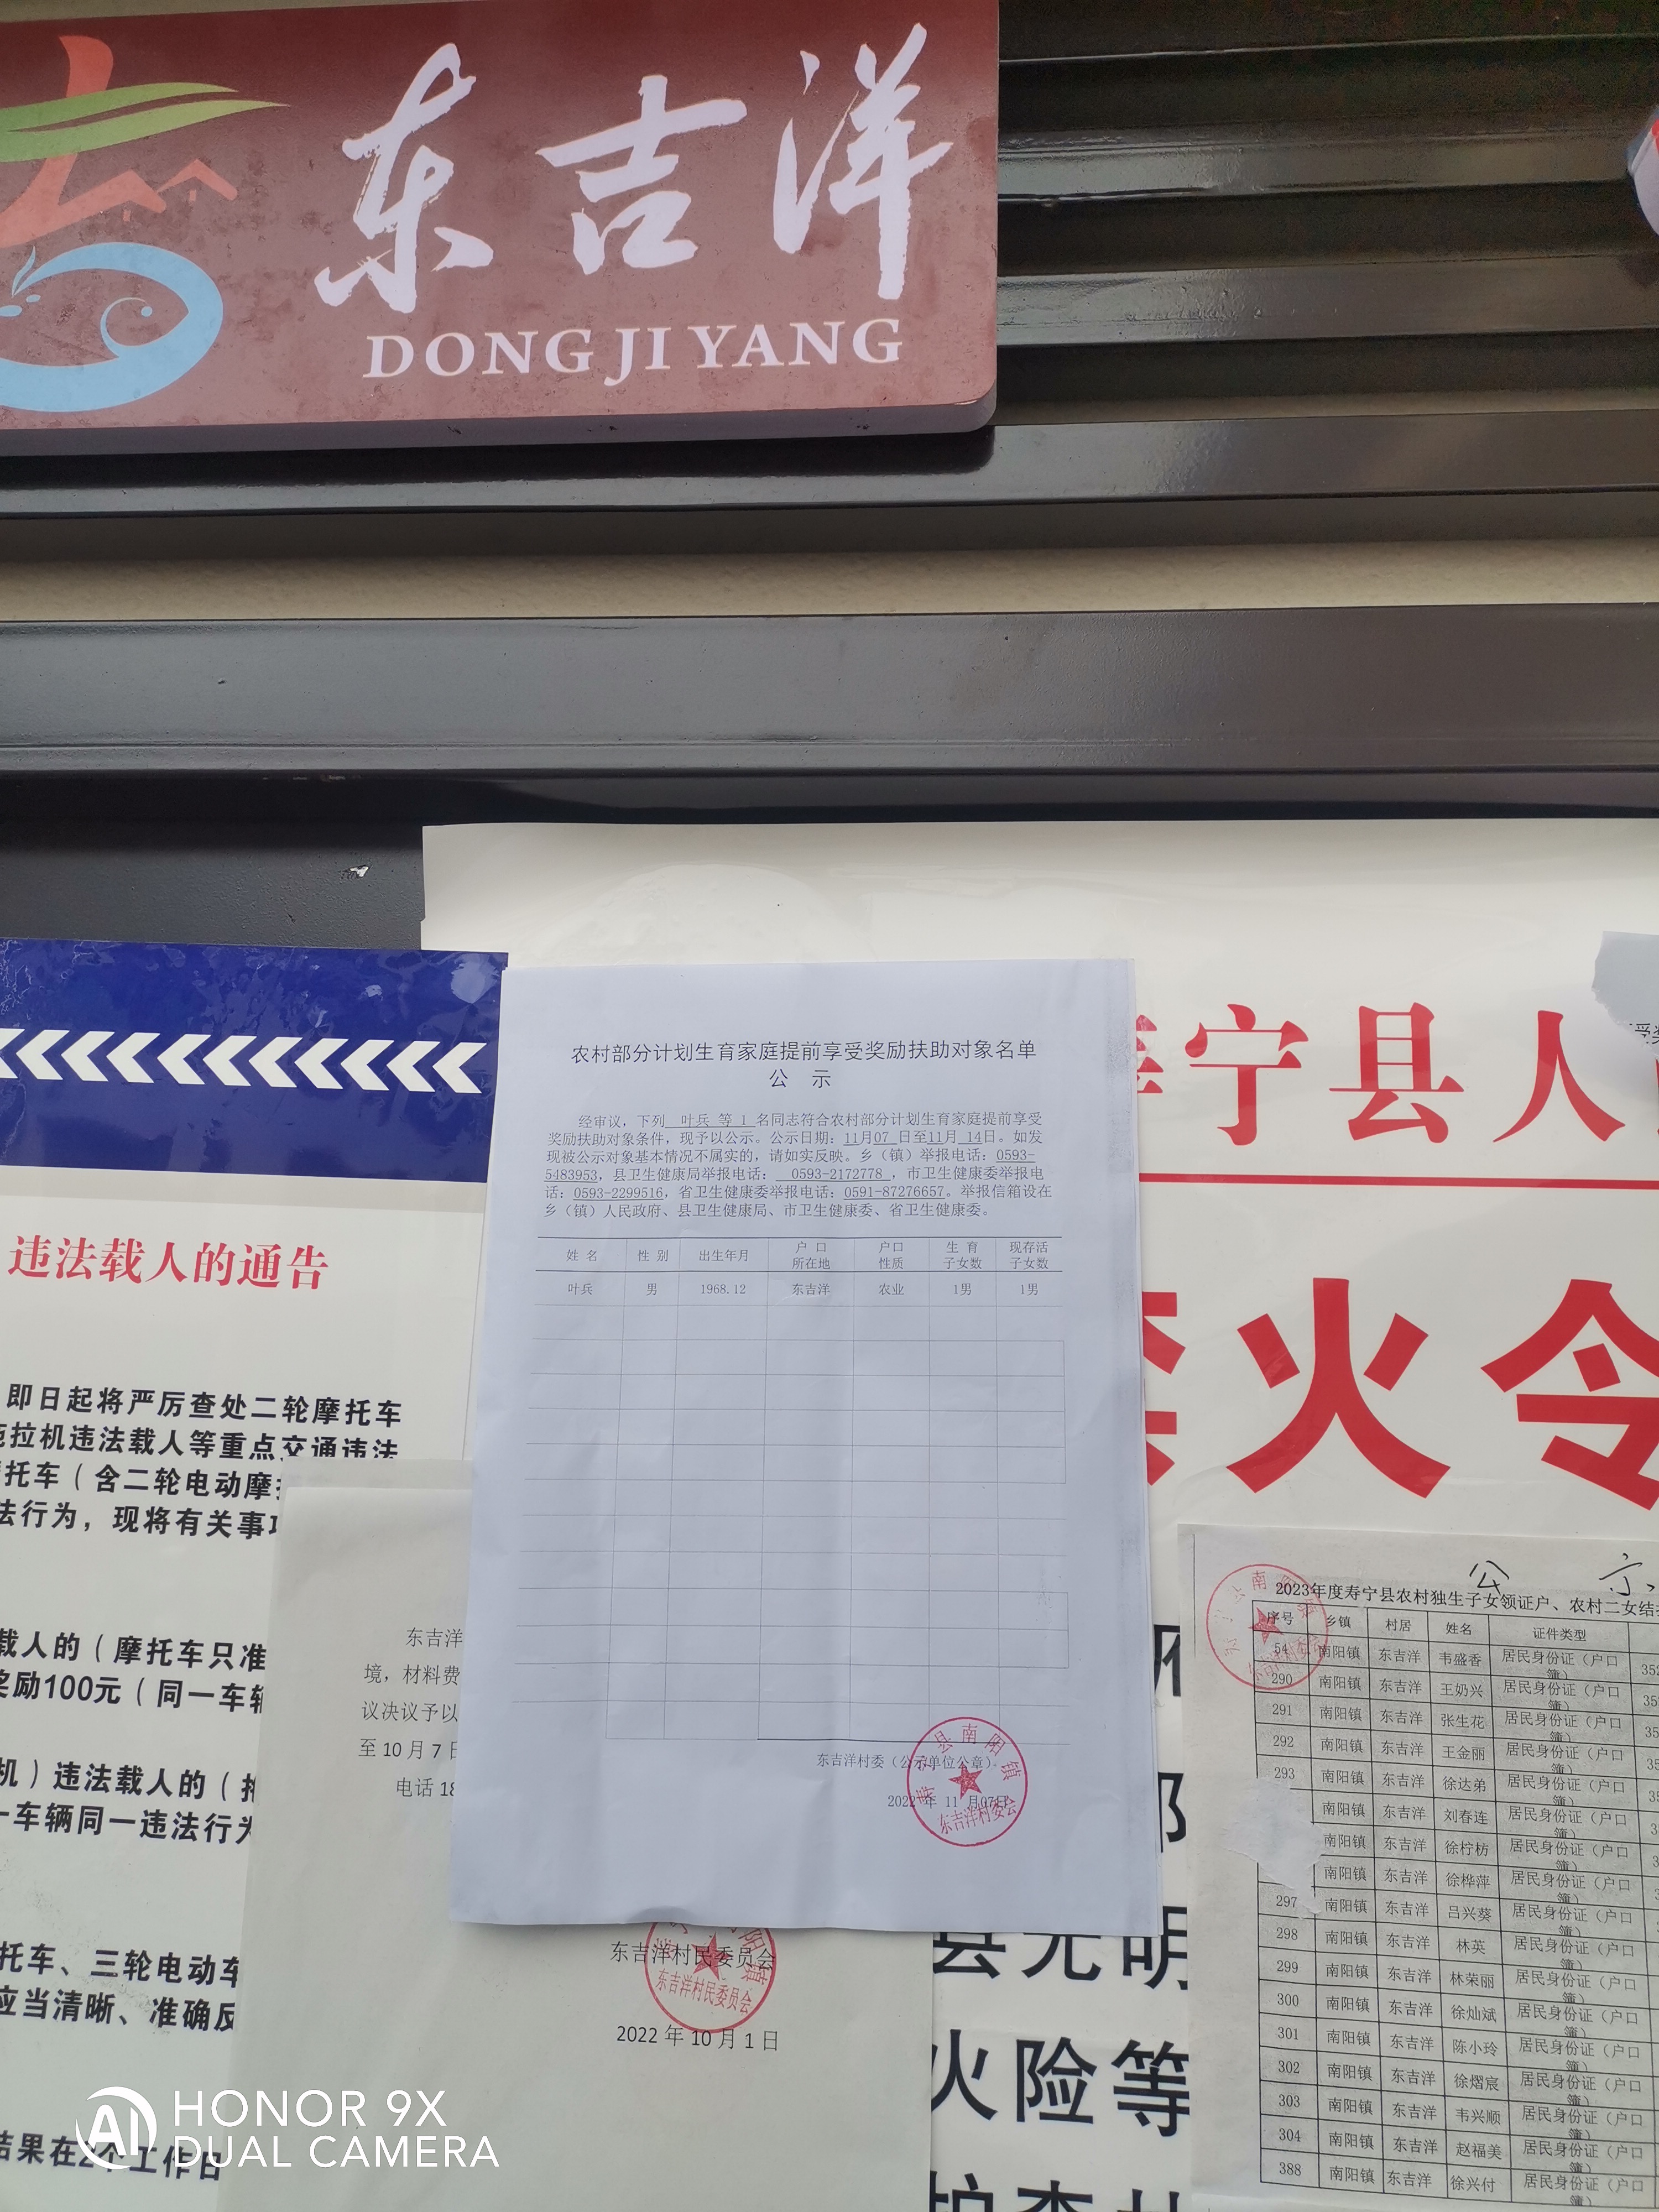 东吉洋
DONG JI YANG
寿宁县人
火令
违法载人的通告
即日起将严厉查处二轮摩托车
拉机违法载人等重点交通违法
托车（含二轮电动摩
法行为，现将有关事
载人的（摩托车只准
奖励100元（同一车辆
机）违法载人的（
一车辆同一违法行为
托车、三轮电动车
应当清晰、准确反
结果在2个工作日
农村部分计划生育家庭提前享受奖励扶助对象名单
公 示
经审议，下列 叶兵 等 1 名同志符合农村部分计划生育家庭提前享受
奖励扶助对象条件，现予以公示。公示日期：11月07 日至11月 14日。如发
现被公示对象基本情况不属实的，请如实反映。乡（镇）举报电话：0593-
5483953，县卫生健康局举报电话： 0593-2172778 ，市卫生健康委举报电
话：0593-2299516，省卫生健康委举报电话：0591-87276657。举报信箱设在
乡（镇）人民政府、县卫生健康局、市卫生健康委、省卫生健康委。
姓 名 性 别 出生年月 户 口 所在地 户口 性质 生 育 子女数 现存活 子女数
叶兵 男 1968.12 东吉洋 农业 1男 1男
东吉洋村委（公示单位公章）。
2022 年 11 月07日
县南阳镇
东吉洋村委会
东吉洋
境，材料费
议决议予以
至 10 月 7 日
电话 18
东吉洋村民委员会
东吉洋村民委员会
2022 年 10 月 1 日
县光明
火险等
公 示
2023年度寿宁县农村独生子女领证户、农村二女结
序号 乡镇 村居 姓名 证件类型
54 南阳镇 东吉洋 韦盛香 居民身份证（户口簿） 352
290 南阳镇 东吉洋 王奶兴 居民身份证（户口簿） 35
291 南阳镇 东吉洋 张生花 居民身份证（户口簿） 35
292 南阳镇 东吉洋 王金丽 居民身份证（户口簿） 35
293 南阳镇 东吉洋 徐达弟 居民身份证（户口簿） 35
南阳镇 东吉洋 刘春连 居民身份证（户口簿） 3
南阳镇 东吉洋 徐柠枋 居民身份证（户口簿） 3
南阳镇 东吉洋 徐桦萍 居民身份证（户口簿） 3
297 南阳镇 东吉洋 吕兴葵 居民身份证（户口簿）
298 南阳镇 东吉洋 林英 居民身份证（户口簿）
299 南阳镇 东吉洋 林荣丽 居民身份证（户口簿）
300 南阳镇 东吉洋 徐灿斌 居民身份证（户口簿）
301 南阳镇 东吉洋 陈小玲 居民身份证（户口簿）
302 南阳镇 东吉洋 徐熠宸 居民身份证（户口簿）
303 南阳镇 东吉洋 韦兴顺 居民身份证（户口簿）
304 南阳镇 东吉洋 赵福美 居民身份证（户口簿）
388 南阳镇 东吉洋 徐兴付 居民身份证（户口簿）
AI HONOR 9X
DUAL CAMERA